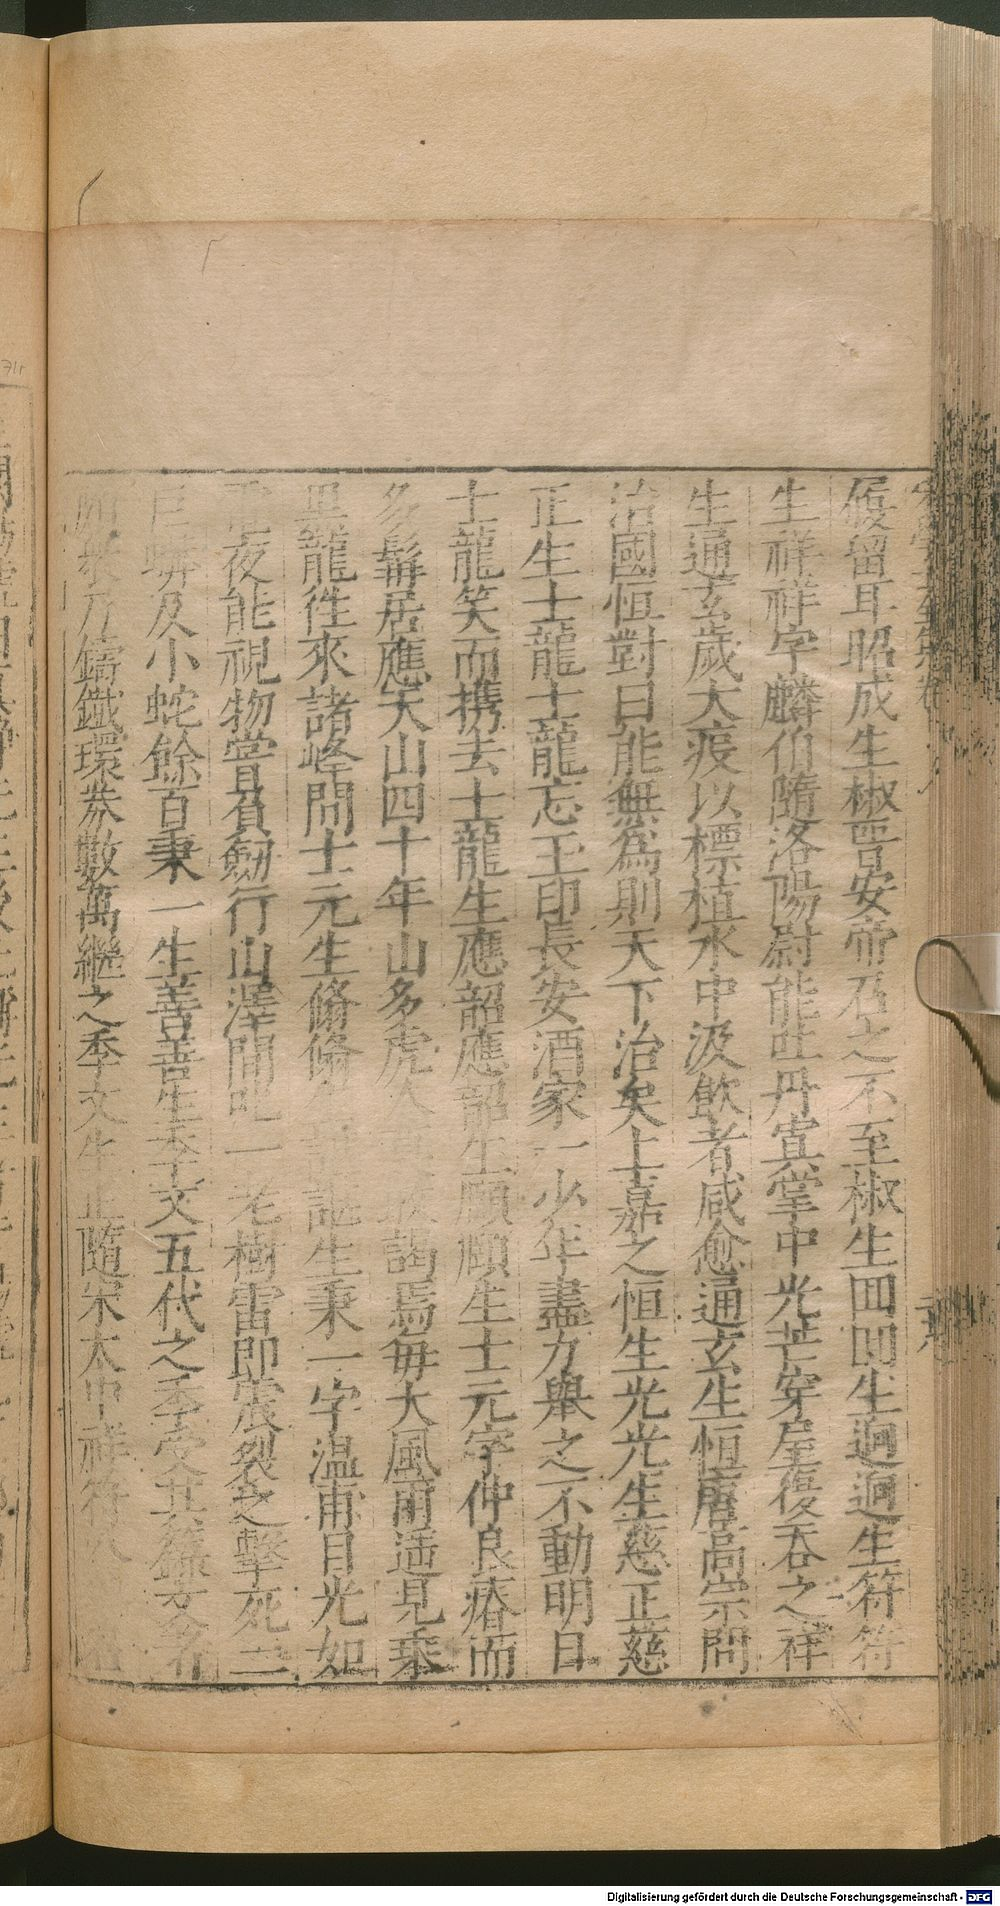 履留耳昭成生椒晉安帝召之不至椒生回回生迥迥生符符
生祥祥字麟伯隨洛陽尉能吐丹寘掌中光芒穿屋復吞之祥
生通玄歲大疫以標植水中汲飲者咸愈通玄生恒唐高宗問
治國恒對曰能無為則天下治矣士嘉之恒生光光生慈正慈
正生士龍士龍忘王印長安酒家一少年盡力舉之不動明日
士龍笑而攜去士龍生應韶應韶生頋頋生士元字仲良瘠而
多髯居應天山四十年山多虎人謁焉每大風雨遥見乗
黒龍徃來諸峰間士元生脩脩生秉一字温甫目光如
電夜能視物嘗負劔行山澤間叱一老樹雷即震裂之擊死二
巨蟒及小蛇餘百秉一生善善生季文五代之季受其籙者
乃鑄鐡環券數萬繼之季文生正隨宋太中祥符八
Digitalisierung gefördert durch die Deutsche Forschungsgemeinschaft - DFG